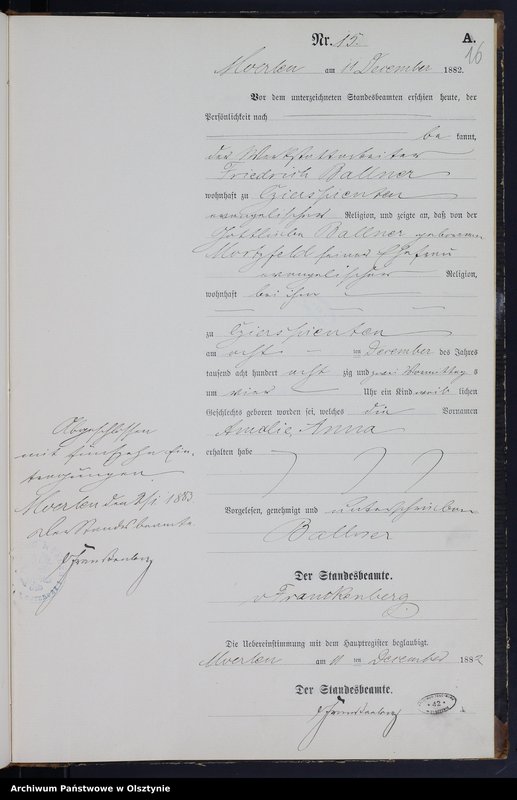 Nr. 15.
A.
16
Moerlen am 11 December 1882.
Vor dem unterzeichneten Standesbeamten erschien heute, der
Persönlichkeit nach
be kannt,
der Werkstattarbeiter
Friedrich Ballner
wohnhaft zu
evangelischer Religion, und zeigte an, daß von der
Ballner geborenen
seiner Ehefrau
evangelischer Religion,
wohnhaft bei ihm
zu
am acht ten December des Jahres
tausend acht hundert acht zig und zwei Vormittag s
um vier Uhr ein Kind weib lichen
Geschlechts geboren worden sei, welches die Vornamen
Amalie Anna
erhalten habe
Vorgelesen, genehmigt und unterschrieben
Ballner
Der Standesbeamte.
v Franckenberg
Die Uebereinstimmung mit dem Hauptregister beglaubigt.
Moerlen am 11 ten December 1882
Der Standesbeamte.
v Franckenberg
Abgeschlossen
mit fünfzehn Ein-
tragungen.
Moerlen den 2/1 1883
Der Standesbeamte
v Franckenberg
42
Archiwum Państwowe w Olsztynie